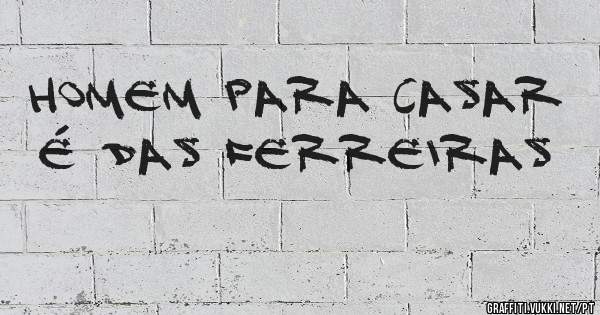 HOMEM PARA CASAR
É DAS FERREIRAS
GRAFFITI.VUKKI.NET/PT